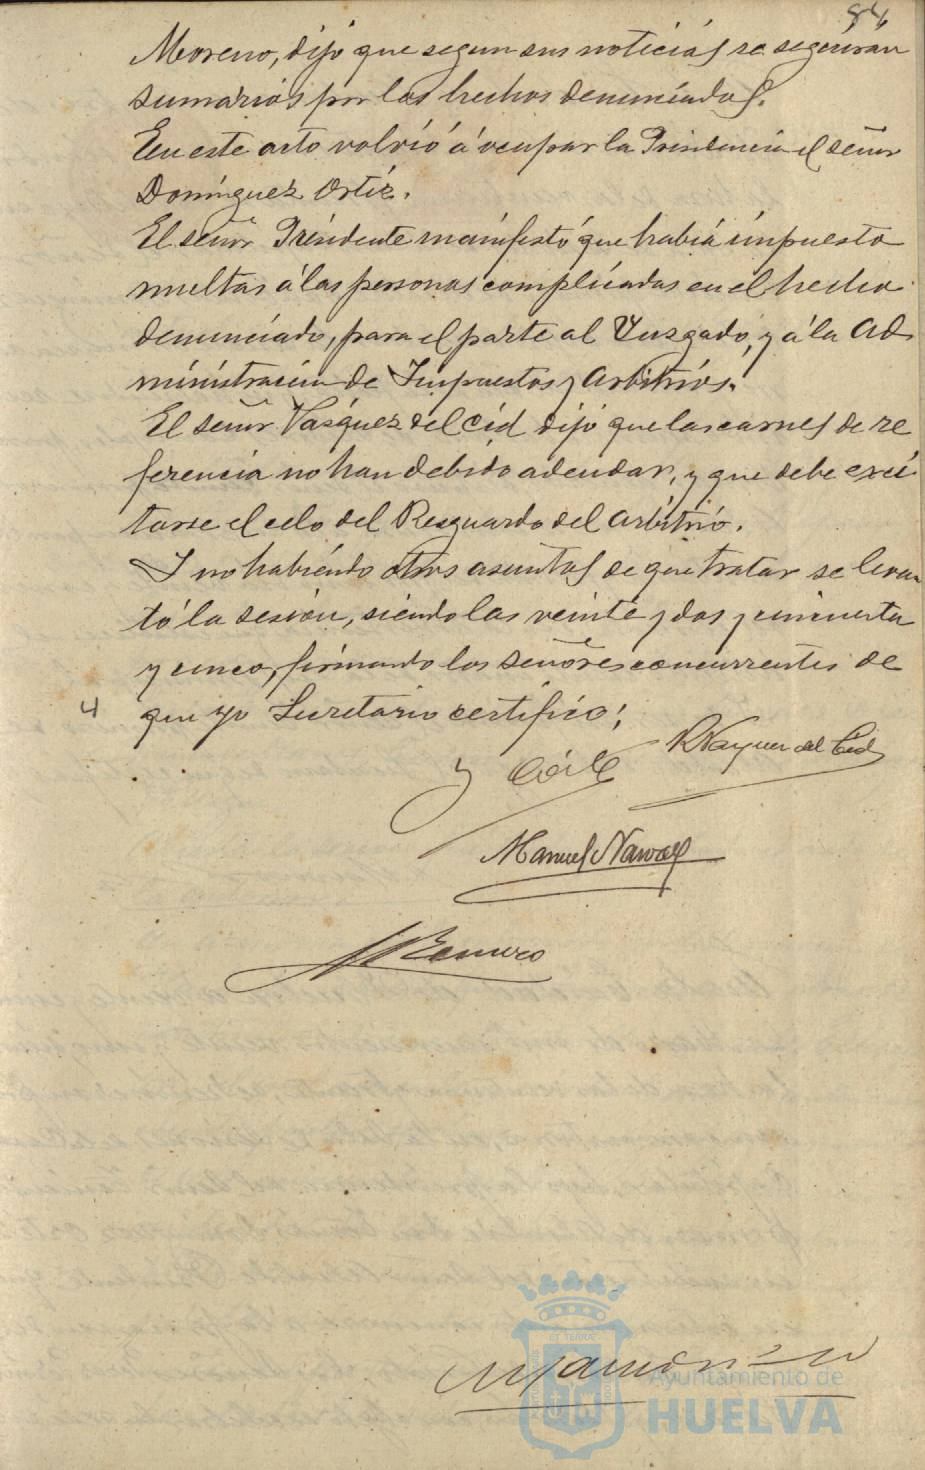 84
Moreno, dijo que segun sus noticias se seguirán
sumarios por los hechos denunciados.
En este acto volvió á ocupar la Presidencia el señor
Domínguez Ortiz.
El señor Presidente manifestó que había impuesto
multas á las personas complicadas en el hecho
denunciado, para el parte al Yuzgado, y á la Ad
ministracion de Impuestos y Arbitrios.
El señor Vasquez del Cid dijo que las carnes de re
ferencia no han debido adeudar, y que debe exci
tarse el celo del Resguardo del Arbitrio.
Y no habiendo otros asuntos de que tratar se levan
tó la sesion, siendo las veinte y dos y cincuenta
y cinco, firmando los señores concurrentes de
que yo Secretario certifico;
R Vazquez del Cid
Manuel Narvaez
Romero
ET TERRÆ
Ayuntamiento de
HUELVA